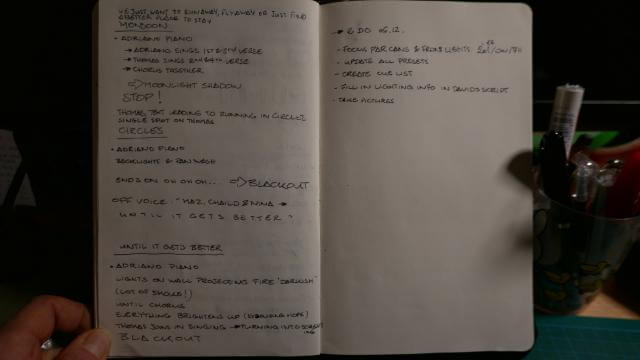 WE JUST WANT TO RUNAWAY, FLYAWAY OR JUST FIND
A BETTER PLACE TO STAY
MONSOON
• ADRIANO PIANO
→ ADRIANO SINGS 1ST & 3RD VERSE
→ THOMAS SINGS 2ND & 4TH VERSE
→ CHORUS TOGETHER
⇒ MOONLIGHT SHADOW
STOP!
THOMAS TEXT LEADING TO RUNNING IN CIRCLES
SINGLE SPOT ON THOMAS
CIRCLES
• ADRIANO PIANO
BACKLIGHTS & PAR WASH
ENDS ON OH OH OH... ⇒ BLACKOUT
OFF VOICE: "MAZ, & NINA →
UNTIL IT GETS BETTER"
UNTIL IT GETS BETTER
• ADRIANO PIANO
LIGHTS ON WALL PROJECTING FIRE "DARKISH"
(LOT OF SMOKE!)
UNTIL CHORUS
EVERYTHING BRIGHTENS UP HOPE)
THOMAS JOINS IN SINGING → TURNING INTO
BLACKOUT
→ DO 05.12.
- FOCUS PAR CANS & FRONT LIGHTS
- UPDATE ALL PRESETS
- CREATE CUE LIST
- FILL IN LIGHTING INFO IN DAVIDS SCRIPT
- TAKE PICTURES